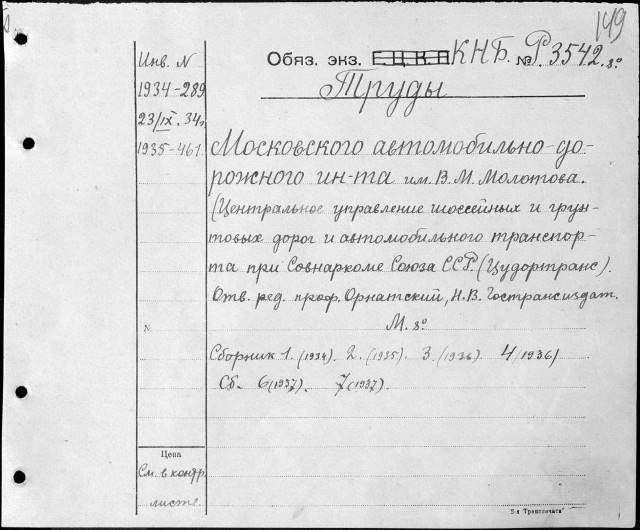 149
Инв. N
Обяз. экз. Е.Ц.К.П КНБ. № Р.3542. 8°
1934-289
Труды
23/IX. 34г.
1935-461
Московского автомобильно-до-
рожного ин-та им. В. М. Молотова.
(Центральное управление шоссейных и грун-
товых дорог и автомобильного транспор-
та при Совнаркоме Союза ССР. (Цудортранс).
Отв. ред. проф. Орнатский, Н. В. Гострансиздат.
N
М. 8°
Сборник 1. (1934). 2. (1935). 3. (1936). 4 (1936)
Сб. 6 (1937). 7 (1937).
Цена
См. в контр.
листе.